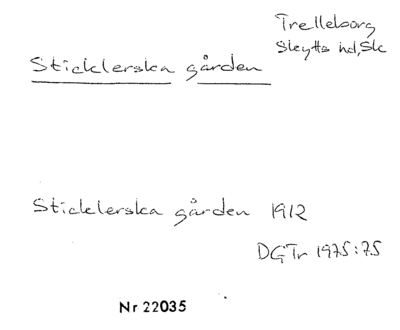 Trelleborg
Skytts hd, Sk
Sticklerska gården
Sticklerska gården 1912
DGTr 1975:75
Nr 22035